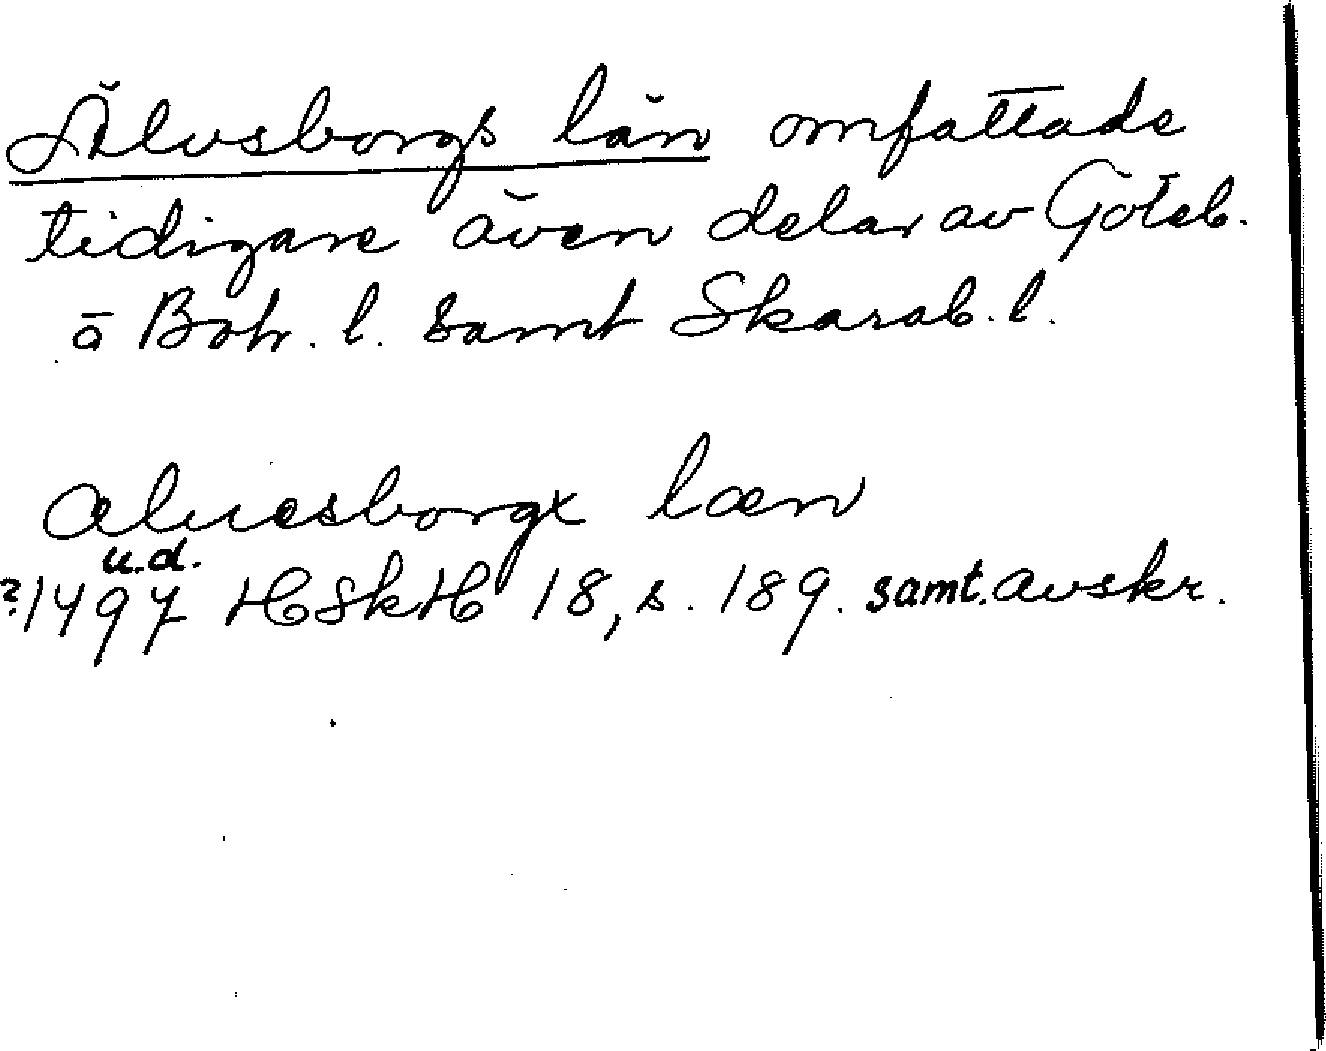 Älvsborgs län omfattade
tidigare även delar av Göteb.
o Boh. l. samt Skarab. l.
æluesborgx læn
u.d.
?1497 HSkH 18, s. 189. samt. avskr.